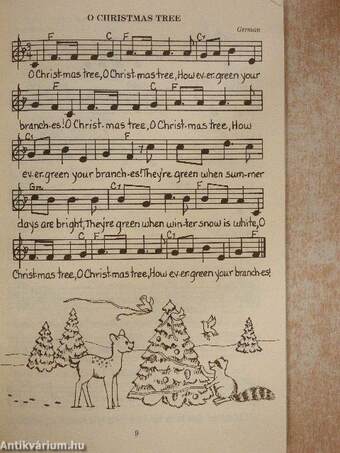 O CHRISTMAS TREE
German
F C F C7
O Christ-mas tree, O Christ-mas tree, How ev-er-green your
F C F
branch-es! O Christ-mas tree, O Christ-mas tree, How
C7 F
ev-er-green your branch-es! They're green when sum-mer
Gm C7
days are bright, They're green when win-ter snow is white, O
F C7 F
Christ-mas tree, O Christ-mas tree, How ev-er-green your branch-es!
9
Antikvárium.hu